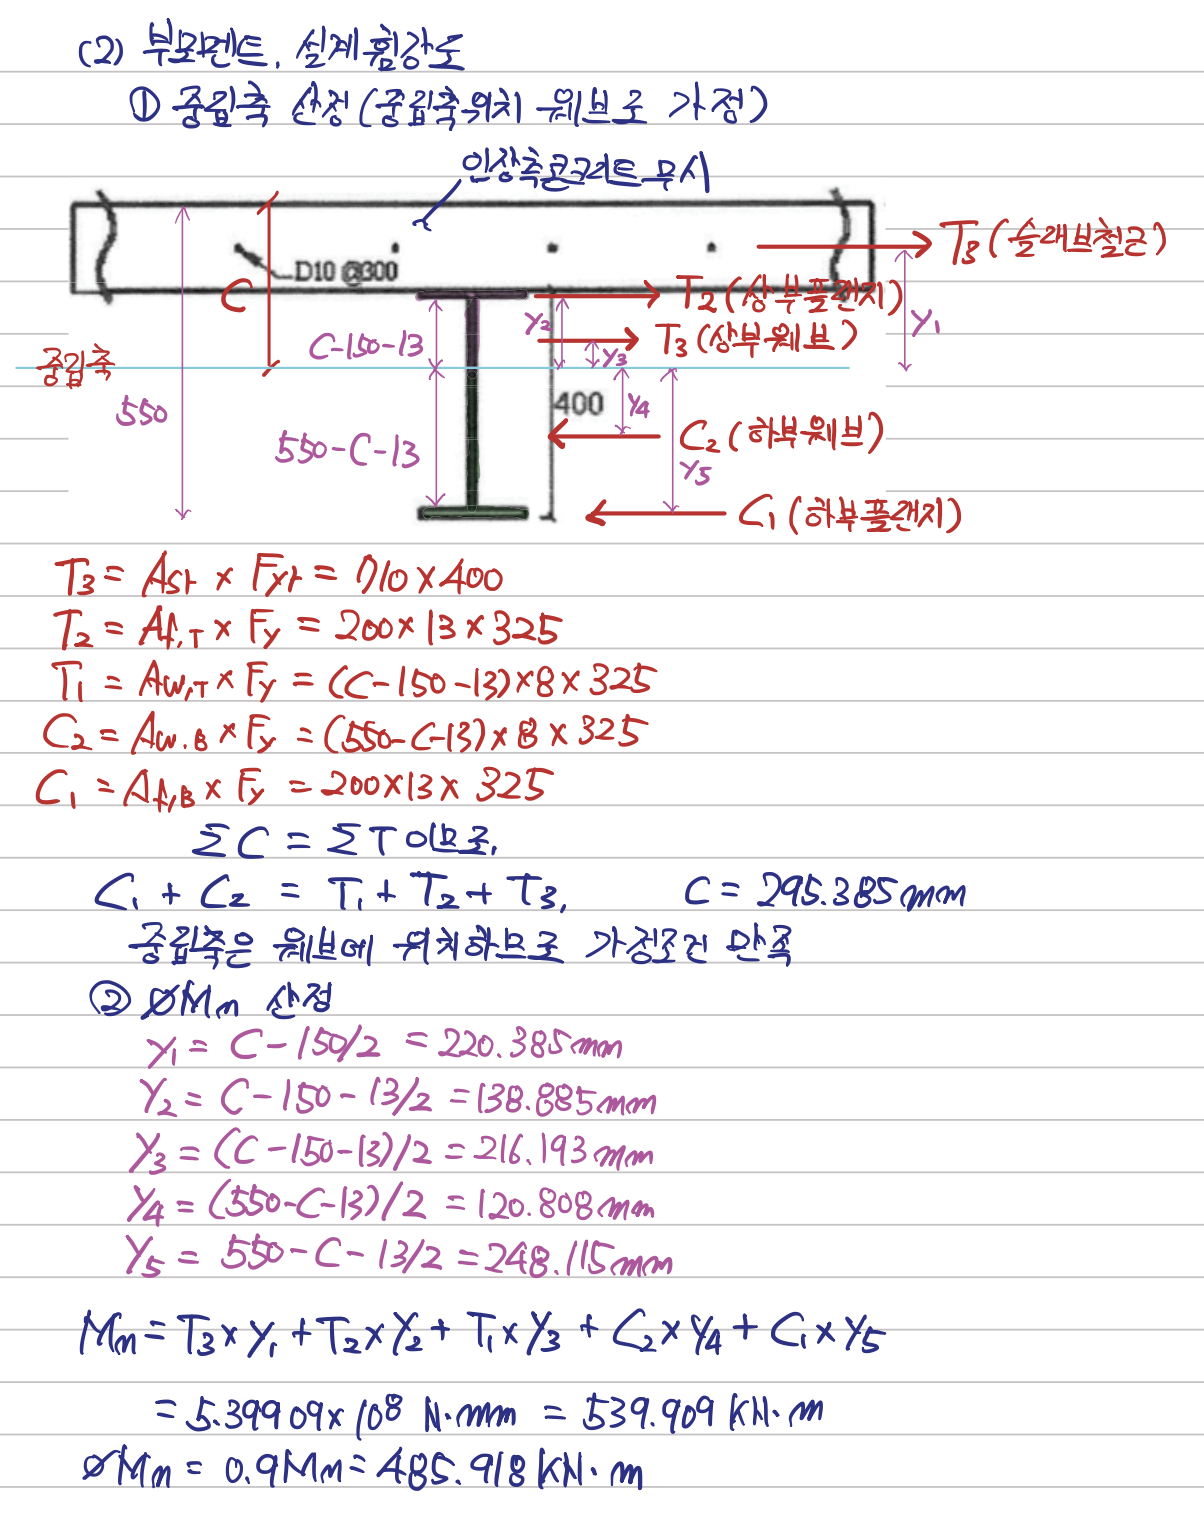 (2) 부모멘트, 설계휨강도
① 중립축 산정 (중립축위치 웨브로 가정)
인장측콘크리트 무시
T3 (슬래브철근)
D10 @300
C
T2 (상부플랜지)
C-150-13
Y2
T3 (상부웨브)
Y3
Y1
중립축
550
400
Y4
550-C-13
C2 (하부웨브)
Y5
C1 (하부플랜지)
T3 = Asr × Fyr = 710 × 400
T2 = Af,T × Fy = 200 × 13 × 325
T1 = Aw,T × Fy = (C-150-13) × 8 × 325
C2 = Aw.B × Fy = (550-C-13) × 8 × 325
C1 = Af,B × Fy = 200 × 13 × 325
ΣC = ΣT 이므로,
C1 + C2 = T1 + T2 + T3, C = 295.385mm
중립축은 웨브에 위치하므로 가정조건 만족
② ØMn 산정
Y1 = C - 150/2 = 220.385mm
Y2 = C - 150 - 13/2 = 138.885mm
Y3 = (C - 150 - 13)/2 = 216.193mm
Y4 = (550-C-13)/2 = 120.808mm
Y5 = 550 - C - 13/2 = 248.115mm
Mn = T3 × Y1 + T2 × Y2 + T1 × Y3 + C2 × Y4 + C1 × Y5
= 5.39909 × 10⁸ N·mm = 539.909 kN·m
ØMn = 0.9Mn = 485.918 kN·m